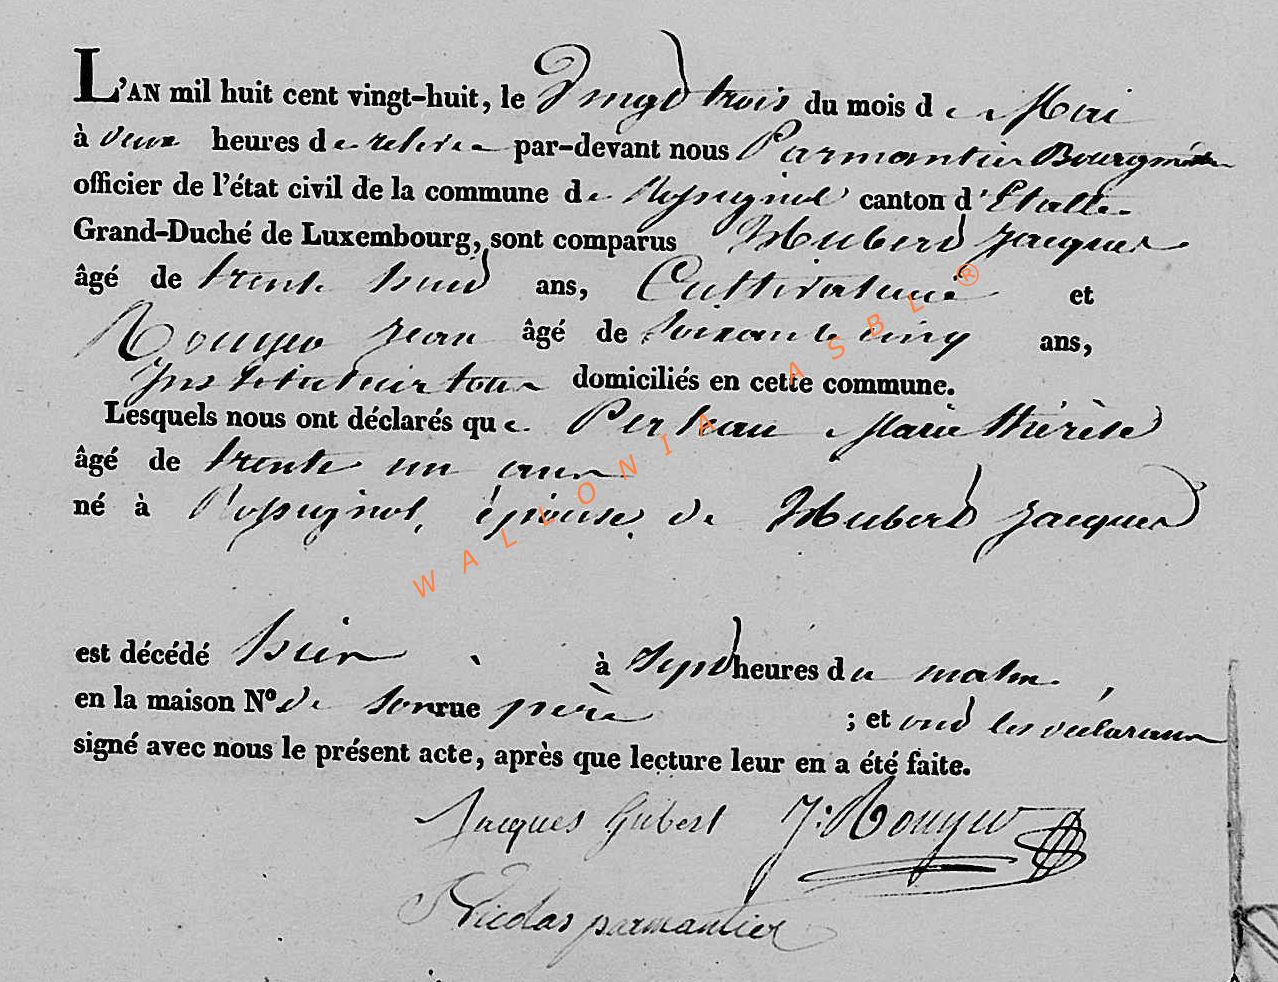 L'AN mil huit cent vingt-huit, le Vingt trois du mois de Mai
à deux heures de relevée par-devant nous Parmantier Bourgmestre
officier de l'état civil de la commune de Rossignol canton d'Etalle
Grand-Duché de Luxembourg, sont comparus Hubert Jacques
âgé de trente huit ans, Cultivateur et
Rouyer Jean âgé de soixante cinq ans,
Instituteur tous domiciliés en cette commune.
Lesquels nous ont déclarés que Perleau Marie thérèse
âgé de trente un ans
né à Rossignol, épouse de Hubert Jacques
est décédé hier à sept heures du matin,
en la maison Nº de son rue père ; et ont les déclarans
signé avec nous le présent acte, après que lecture leur en a été faite.
Jacques Hubert J: Rouyer
Nicolas parmantier
WALLONIA ASBL ®